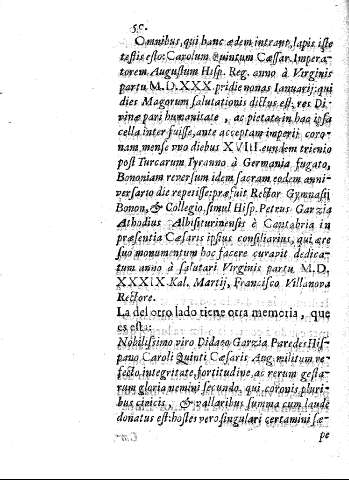 Omnibus, qui hanc ædem intrant, lapis iste
testis esto: Carolum Quintum Cæsar. Impera-
torem Augustum Hisp. Reg. anno à Virginis
partu M.D.XXX. pridie nonas Ianuarij: qui
dies Magorum salutationis dictus est: res Di-
vinæ pari humanitate, ac pietate in hac ipsa
cella inter fuisse, ante acceptam imperij coro-
nam, mense vno diebus XVIII. eundem trienio
post Turcarum Tyranno à Germania fugato,
Bononiam reversum idem sacram eodem anni-
versario die repetisse: præfuit Rector Gymnasij
Bonon, & Collegio, simul Hisp. Petrus Garzia
Athodius Albisiturinensis è Cantabria in
præsentia Cæsaris ipsius consiliarius, qui ære
suo monumentum hoc facere curavit dedica-
tum anno à salutari Virginis partu M.D.
XXXIX. Kal. Martij, Francisco Villanova
Rectore.
La del otro lado tiene otra memoria, que
es esta:
Nobilissimo viro Didaco Garzia Paredes His-
pano Caroli Quinti Cæsaris Aug. militum re-
fecto integritate, fortitudine, ac rerum gesta-
rum gloria nemini secundo, qui coronis pluri-
bus civicis, & vallaribus summa cum laude
donatus est: hostes vero singulari certamini sæ-
pe